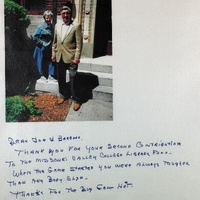 Dear Jon W Barbour
Thank you for your second contribution
to the Missouri Valley College Library Fund.
When the game started you were always tougher
than any body else.
Thanks for the big game hot.